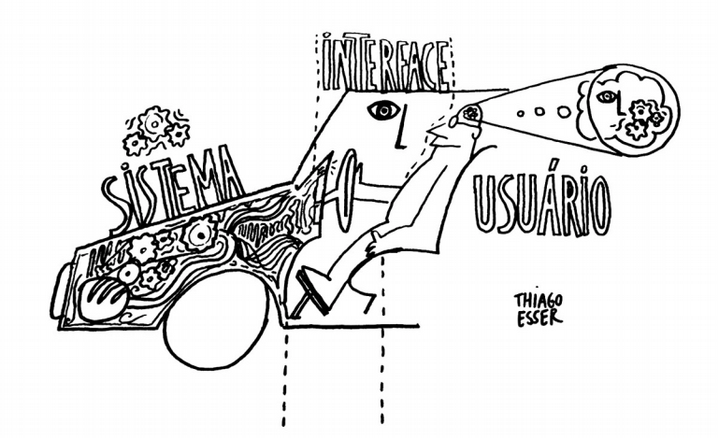 INTERFACE
SISTEMA
USUÁRIO
THIAGO
ESSER